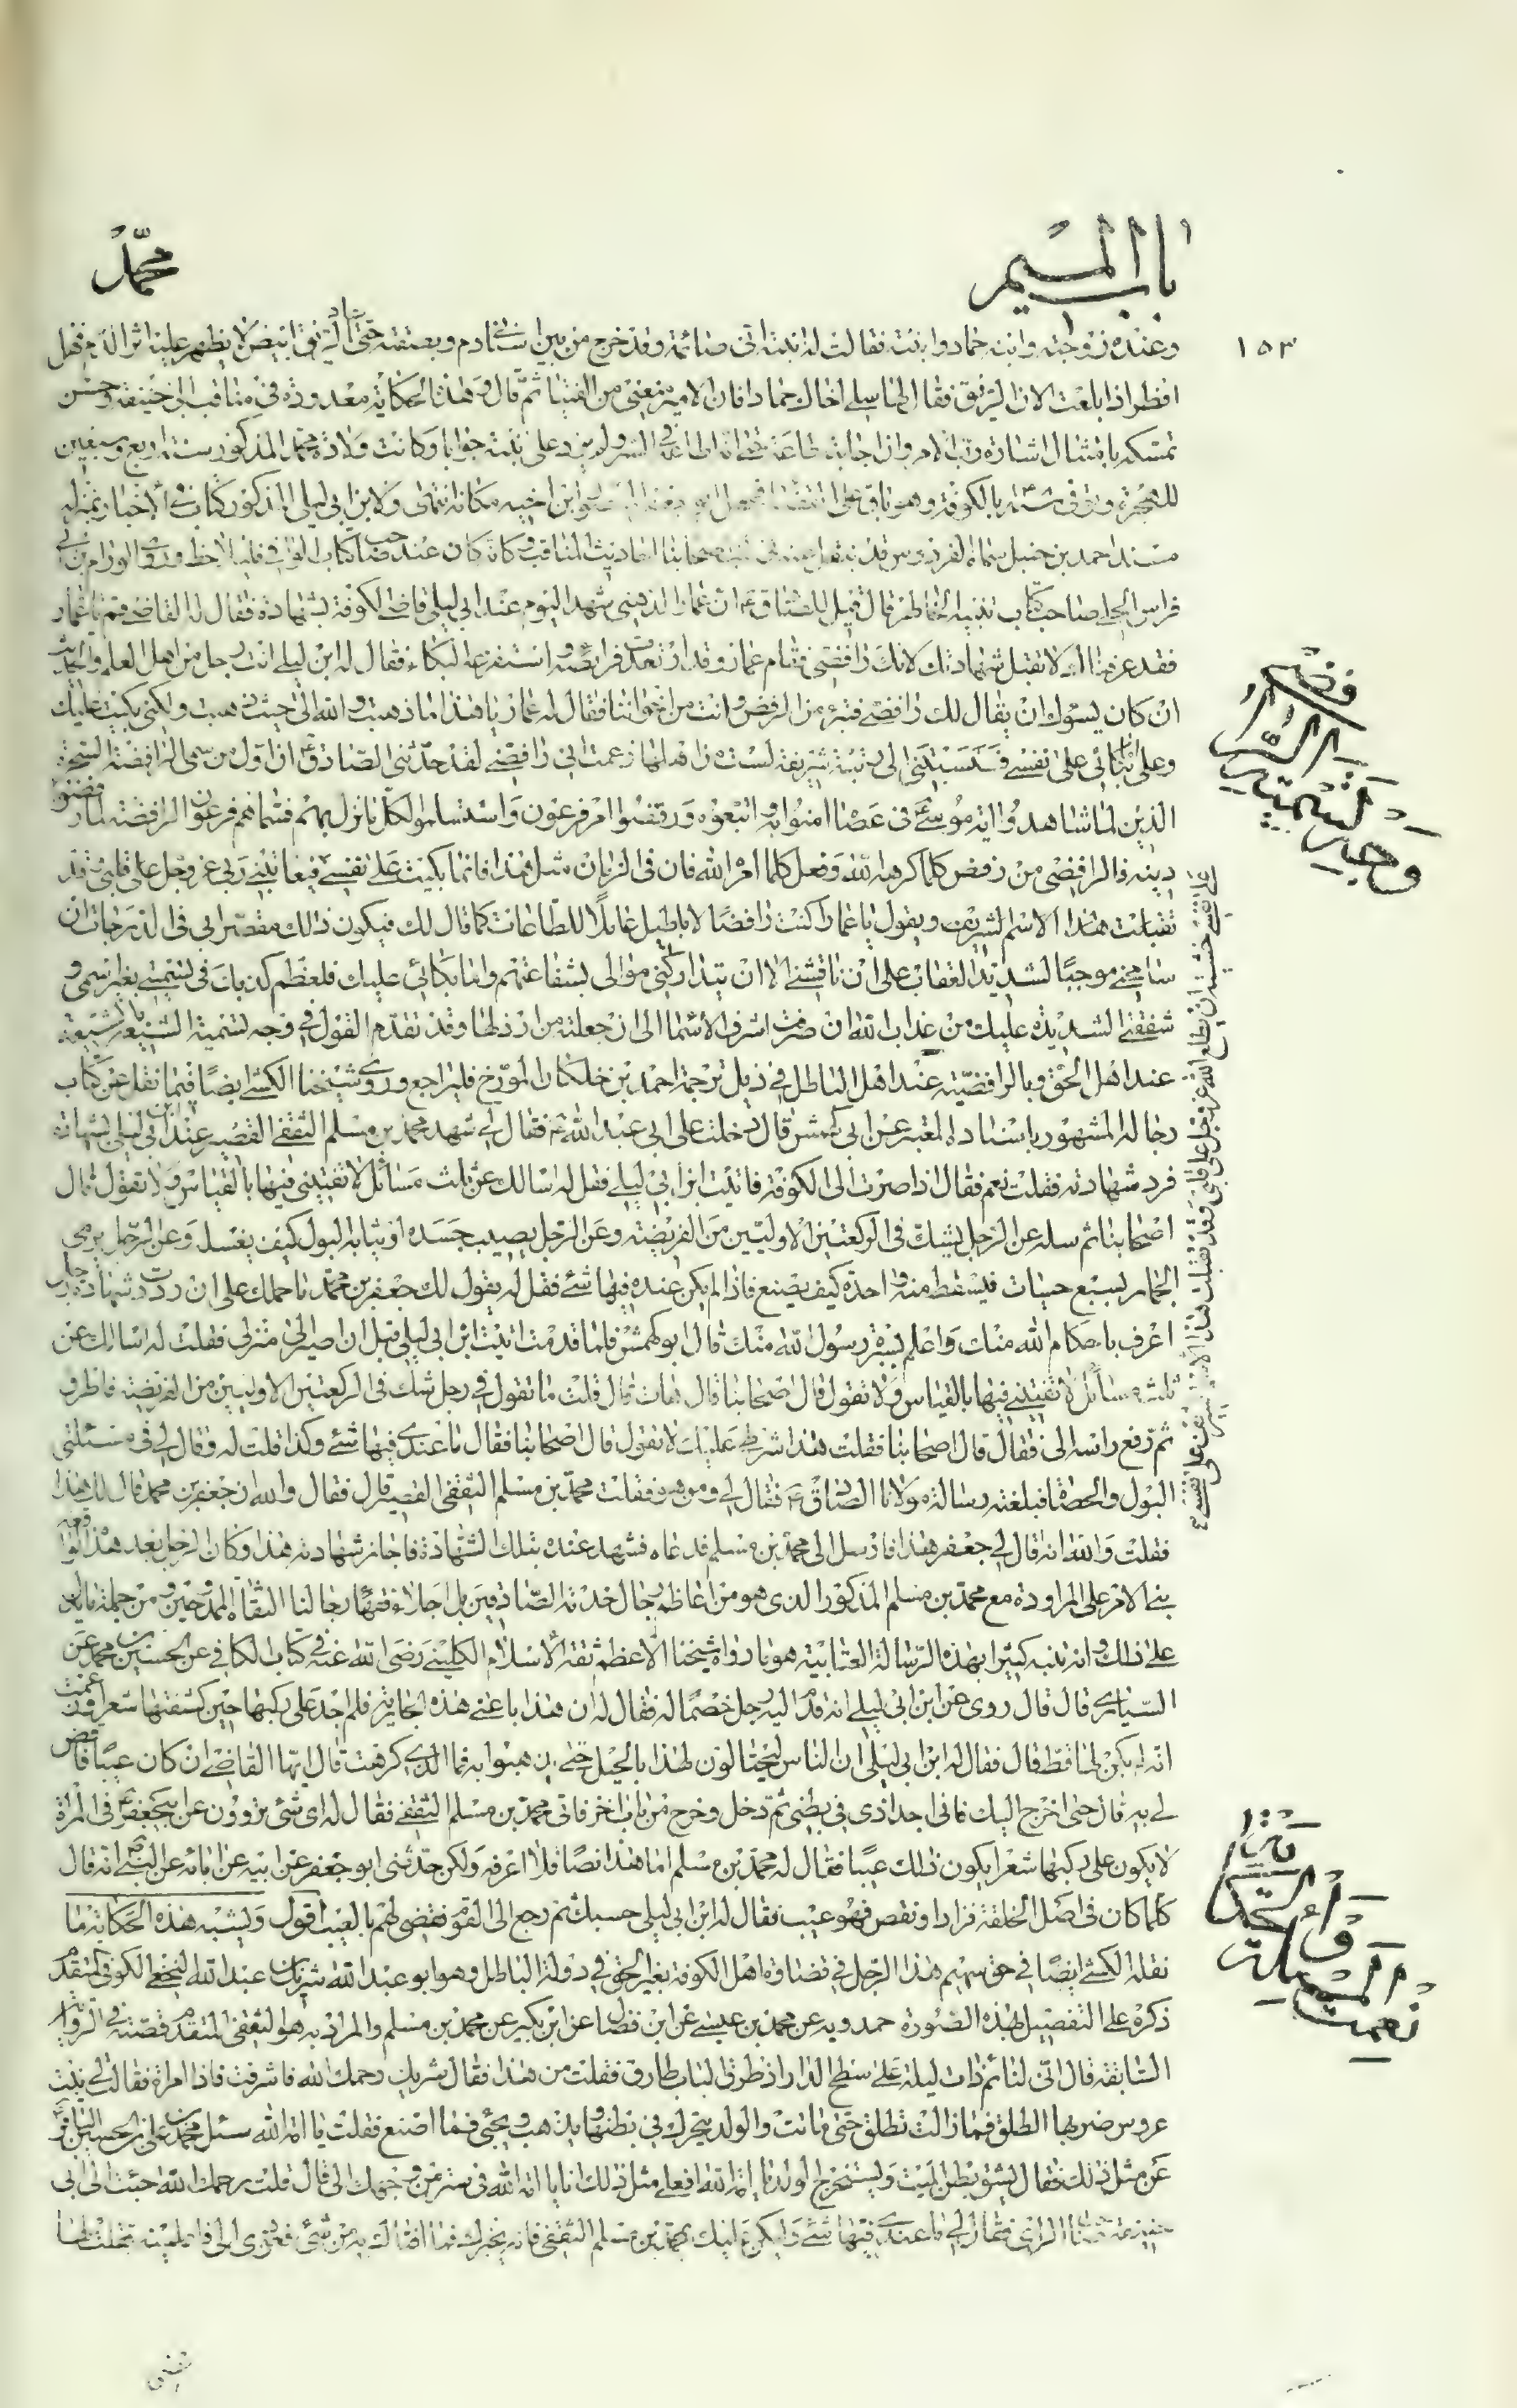 باب الميم
محمد
١٥٣
وعنده زوجته وابنه حماد وابنته فقالت له ابنته انى صائمة وقد خرج من بين اسنانى دم وبصقته حتى عاد الريق ابيض لا يظهر عليه اثر الدم فهل
افطر اذا بلعت الان الريق فقال لها سلى اخاك حمادا فان الامير منعنى من الفتيا ثم قال وهذه الحكاية معدودة فى مناقب ابى حنيفة وحسن
تمسكه بامتثال اشارة رب الامر وان اجابته طاعة حتى انه اطاعه فى السر ولم يرد على ابنته جوابا وكانت ولادة محمد المذكور سنة اربع وسبعين
للهجرة وتوفى سنة بالكوفة وهو باق على القضاء فجعل ابو جعفر المنصور ابن اخيه مكانه انتهى ولابن ابى ليلى المذكور كتاب فى الاخبار بمنزلة
مسند احمد بن حنبل سماه الفردوس قد ينقل عنه فى كتب اصحابنا احاديث المناقب وكانه كان عند صاحب كتاب الوافى فليلاحظ وروى الورام بن ابى
فراس الحلى صاحب كتاب تنبيه الخاطر قال قيل للصادق ع ان عمارا الدهنى شهد اليوم عند ابى ليلى قاضى الكوفة بشهادة فقال له القاضى قم يا عمار
فقد عرفناك لا تقبل شهادتك لانك رافضى فقام عمار وقد ارتعدت فرائصه واستفرغه البكاء فقال له ابن ليلى انت رجل من اهل العلم والحديث
ان كان يسوك ان يقال لك رافضى فتبرء من الرفض وانت من اخواننا فقال له عمار يا هذا ما ذهبت والله الى حيث ذهبت ولكنى بكيت عليك
وعلى اما بكائى على نفسى فنسبتنى الى رتبة شريفة لست من اهلها زعمت انى رافضى لقد حدثنى الصادق ع ان اول من سمى الرافضة السحرة
الذين لما شاهدوا اية موسى ع فى عصا امنوا به واتبعوه ورفضوا امر فرعون واستسلموا لكل ما نزل بهم فسماهم فرعون الرافضة لما رفضوا
دينه فالرافضى من رفض كلما كرهه الله وفعل كلما امره الله فان فى الزمان مثل هذا فانما بكيت على نفسى فيعاتبنى ربى عز وجل على قلبى وقد
تقبلت هذا الاسم الشريف ويقول يا عمار اكنت رافضا لاباطيل عاملا للطاعات كما قال لك فيكون ذلك مقصرا بى فى الدرجات ان
سامحنى موجبا لشديد العقاب على ان ناقشنى الا ان يتداركنى موالى بشفاعتهم واما بكائى عليك فلعظم كذبك فى تسميتى بغير اسمى و
شفقتى الشديدة عليك من عذاب الله ان صرفت اشرف الاسماء الى ان جعلته من ارذلها وقد تقدم القول فى وجه تسمية الشيعة بالشيعة
عند اهل الحق وبالرافضية عند اهل الباطل فى ذيل ترجمة احمد بن خلكان المورخ فليراجع وروى شيخنا الكشى ايضا فيما نقل عن كتاب
رجاله المشهور باسناده المعتبر عن ابى كهمش قال دخلت على ابى عبد الله ع فقال لى شهد محمد بن مسلم الثقفى القصير عند ابن ابى ليلى بشهادة
فرد شهادته فقلت نعم فقال اذا صرت الى الكوفة فاتيت ابن ابى ليلى فقل له اسالك عن ثلث مسائل لا تفتينى فيها بالقياس ولا تقول قال
اصحابنا ثم سله عن الرجل يشك فى الركعتين الاوليين من الفريضة وعن الرجل يصيب جسده او ثيابه البول كيف يغسله وعن الرجل يرمى
الجمار بسبع حصيات فيسقط منه واحدة كيف يصنع فاذا لم يكن عنده فيها شئ فقل له يقول لك جعفر بن محمد ما حملك على ان رددت شهادة رجل
اعرف باحكام الله منك واعلم بسيرة رسول الله منك قال ابو كهمش فلما قدمت اتيت ابن ابى ليلى قبل ان اصير الى منزلى فقلت له اسالك عن
ثلث مسائل لا تفتينى فيها بالقياس ولا تقول قال اصحابنا قال هات قال قلت ما تقول فى رجل شك فى الركعتين الاوليين من الفريضة فاطرق
ثم رفع راسه الى فقال قال اصحابنا فقلت هذا شرطى عليك لا تقول قال اصحابنا فقال ما عندى فيها شئ وكذا قلت له وقال لى فى مسئلتى
البول والحصاة فبلغته رسالة مولانا الصادق ع فقال لى ومن هو فقلت محمد بن مسلم الثقفى القصير قال فقال والله ان جعفر بن محمد قال لك هذا
فقلت والله انه قال لى جعفر هذا فارسل الى محمد بن مسلم فدعاه فشهد عنده بتلك الشهادة فاجاز شهادته هذا وكان الرجل بعد هذه الواقعة
بنى الامر على المراودة مع محمد بن مسلم المذكور الذى هو من اعاظم رجال خدمة الصادقين بل اجلاء فقهاء رجالنا الثقاة الممدوحين ومن جملة ما يدل
على ذلك وانه تنبه كثيرا بهذه الرسالة العتابية هو ما رواه شيخنا الاعظم ثقة الاسلام الكلينى رضى الله عنه فى كتاب الكافى عن الحسين بن محمد عن
السيارى قال قال روى عن ابن ابى ليلى انه قدم اليه رجل خصما له فقال له ان هذا باعنى هذه الجارية فلم اجد على ركبها حين كشفتها شعرا وزعمت
انه لم يكن لها قط قال فقال له ابن ابى ليلى ان الناس ليحتالون لهذا بالحيل حتى يذهبوا به فما الذى كرهت قال ايها القاضى ان كان عيبا فاقض
لى به قال حتى اخرج اليك فانى اجد اذى فى بطنى ثم دخل وخرج من باب اخر فاتى محمد بن مسلم الثقفى فقال له اى شئ تروون عن ابيجعفر ع فى المراة
لا يكون على ركبها شعر ايكون ذلك عيبا فقال له محمد بن مسلم اما هذا نصا فلا اعرفه ولكن حدثنى ابو جعفر عن ابيه عن ابائه عن النبى ص انه قال
كلما كان فى اصل الخلقة فزاد او نقص فهو عيب فقال له ابن ابى ليلى حسبك ثم رجع الى القوم فقضى لهم بالعيب اقول ويشبه هذه الحكاية ما
نقله الكشى ايضا فى حق سهيم هذا الرجل فى قضاوة اهل الكوفة بغير الحق فى دولة الباطل وهو ابو عبد الله شريك بن عبد الله النخعى الكوفى المتقدم
ذكره على التفصيل لهذه الصورة حمدويه عن محمد بن عيسى عن ابن فضال عن ابن بكير عن محمد بن مسلم والمراد به هو الثقفى المتقدم قصته فى الرواية
السابقة قال انى لنائم ذات ليلة على سطح الدار اذ طرق الباب طارق فقلت من هذا فقال شريك رحمك الله فاشرفت فاذا امراة فقالت لى بنت
عروس ضربها الطلق فما زالت تطلق حتى ماتت والولد يتحرك فى بطنها ويذهب ويجئ فما اصنع فقلت يا امة الله سئل محمد بن على بن الحسين الباقر ع
عن مثل ذلك فقال يشق بطن الميت ويستخرج الولد يا امة الله افعلى مثل ذلك انا يا امة الله فى ستر من وجهك الى قال قلت رحمك الله جئت الى ابى
حنيفة صاحب الراى فقال لى ما عندى فيها شئ ولكن عليك بمحمد بن مسلم الثقفى فانه يخبرك فما افتاك به من شئ فعودى الى فاعلمينيه فقلت لها
وجه تسمية الرافضة
على نفسى خشية ان يطلع الله عز وجل على قلبى وقد تقبلت هذا الاسم